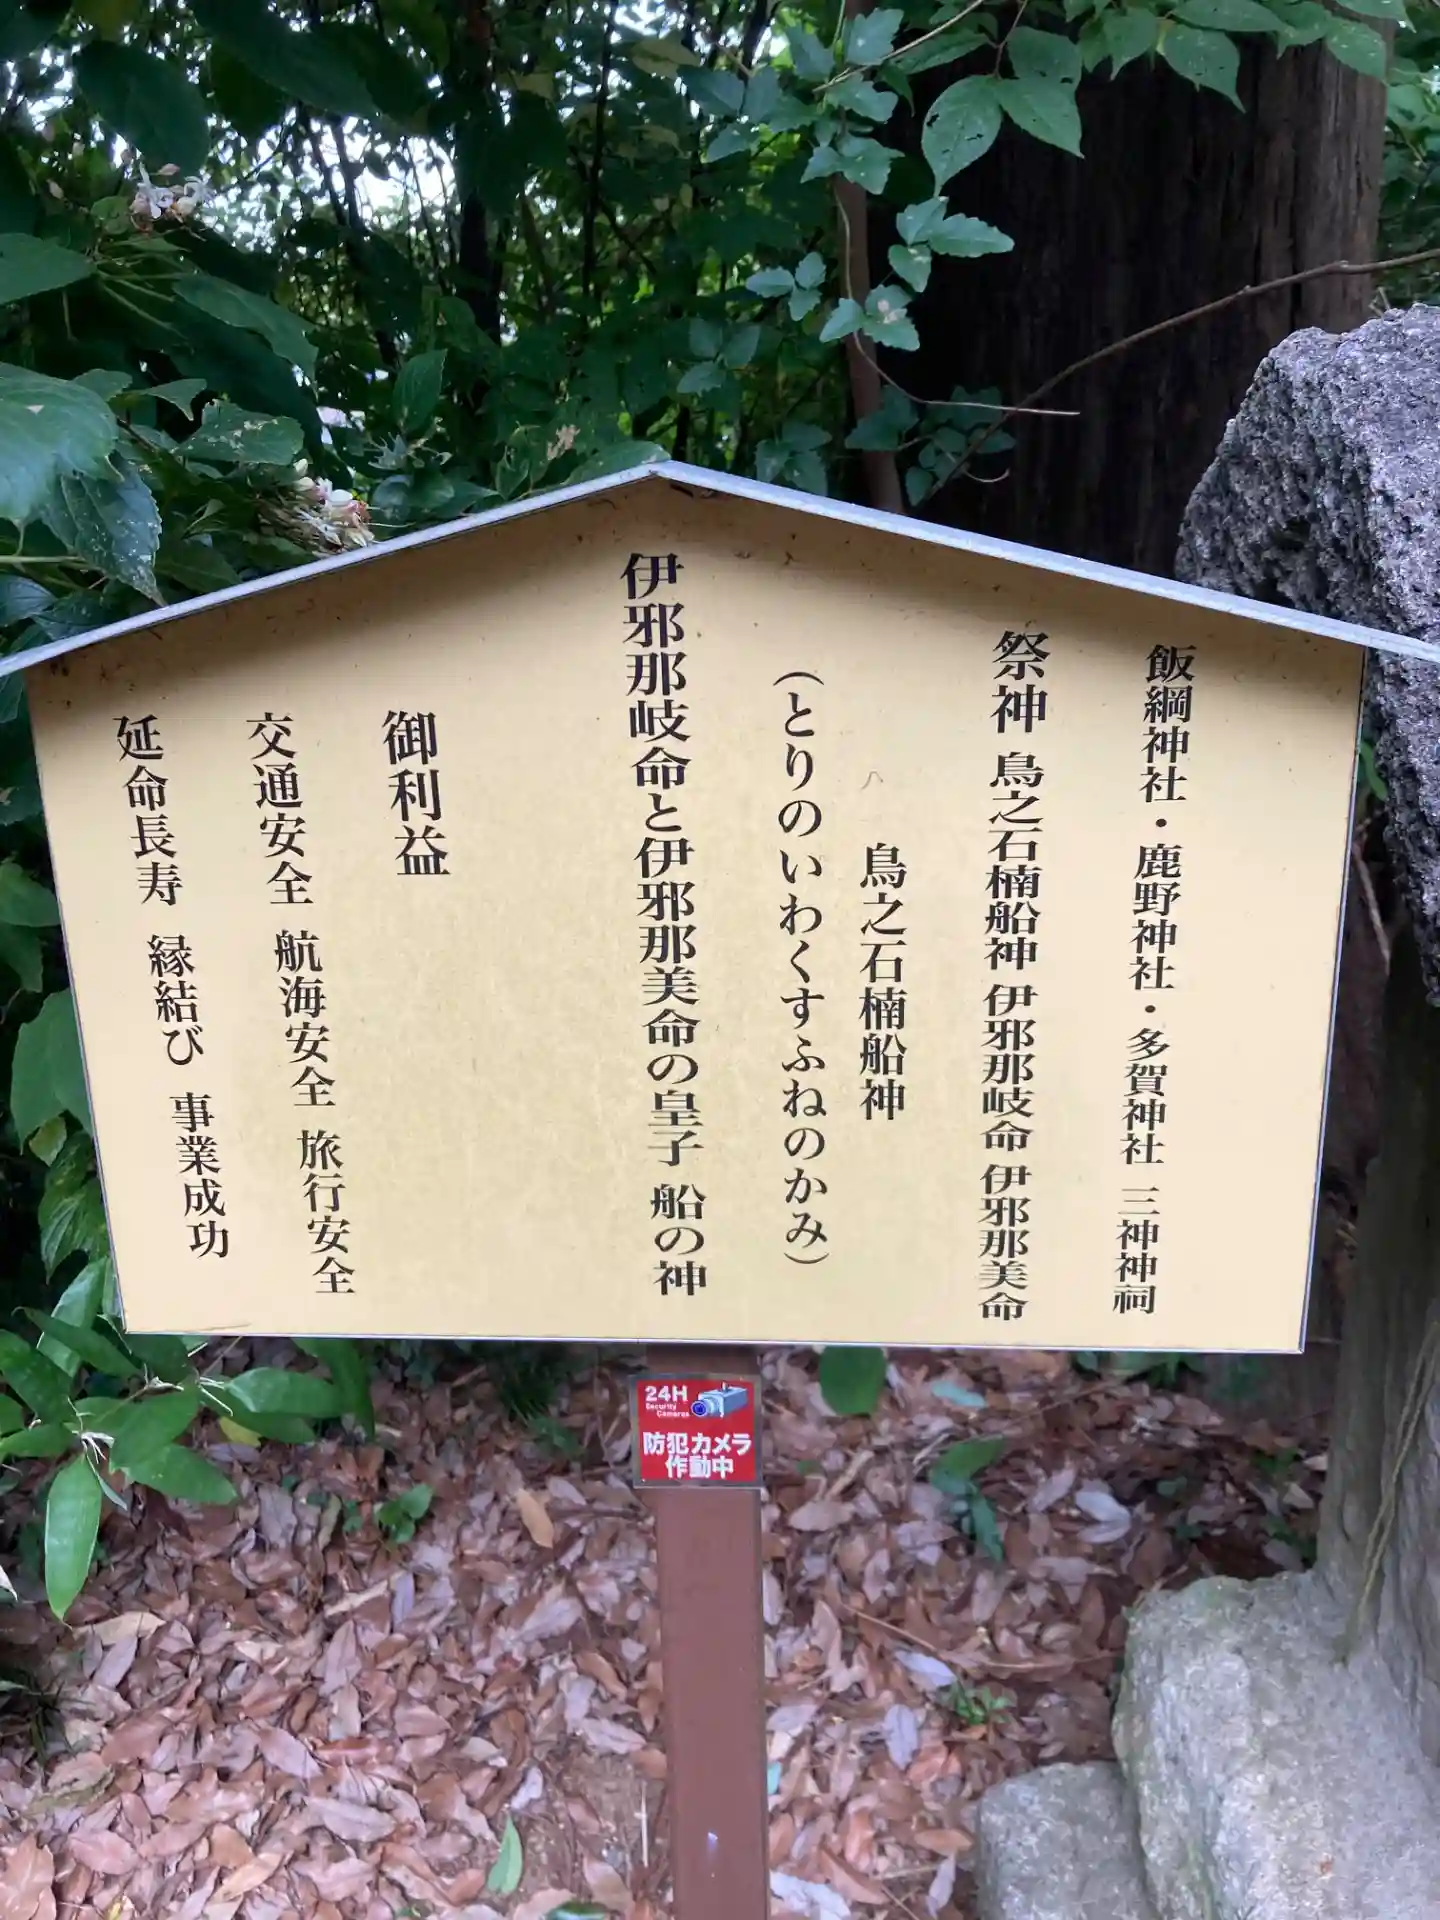 飯綱神社・鹿野神社・多賀神社 三神神祠
祭神 鳥之石楠船神 伊邪那岐命 伊邪那美命
鳥之石楠船神
(とりのいわくすふねのかみ)
伊邪那岐命と伊邪那美命の皇子 船の神
御利益
交通安全 航海安全 旅行安全
延命長寿 縁結び 事業成功
24H
Security
Cameras
防犯カメラ
作動中